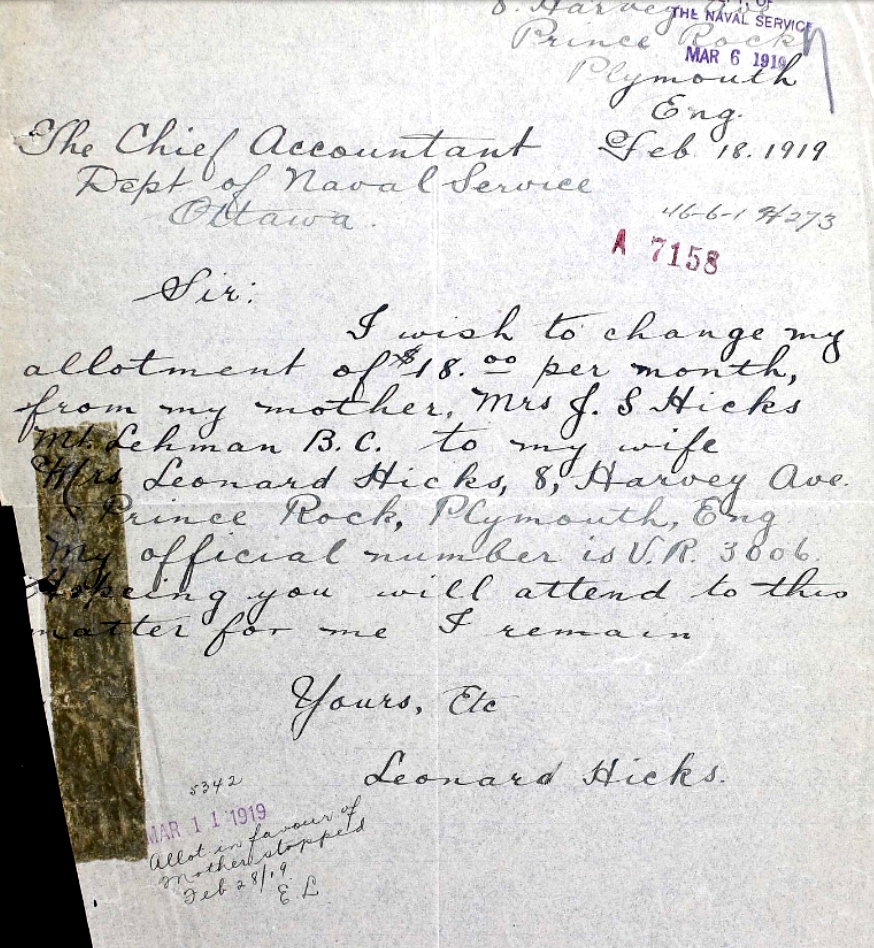 8. Harvey Ave
THE NAVAL SERVICE
Prince Rock
MAR 6 1919
Plymouth
Eng.
The Chief Accountant Feb 18. 1919
Dept of Naval Service
Ottawa.
46-6-1 H273
A 7158
Sir:
I wish to change my
allotment of $18.00 per month,
from my mother, Mrs J. S Hicks
Mt. Lehman B.C. to my wife
Mrs Leonard Hicks, 8, Harvey Ave.
Prince Rock, Plymouth, Eng
My official number is V.R. 3006.
Hopeing you will attend to this
matter for me I remain
Yours, Etc
Leonard Hicks.
5342
MAR 11 1919
Allot in favour of
Mother stopped
Feb 28/19
E L